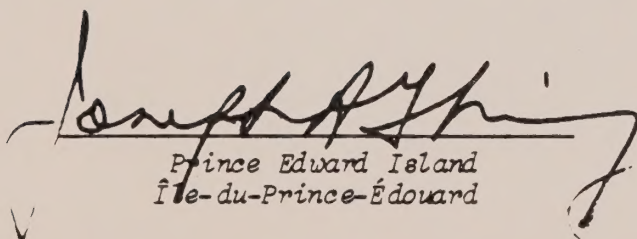 Joseph A. Ghiz
Prince Edward Island
Île-du-Prince-Édouard